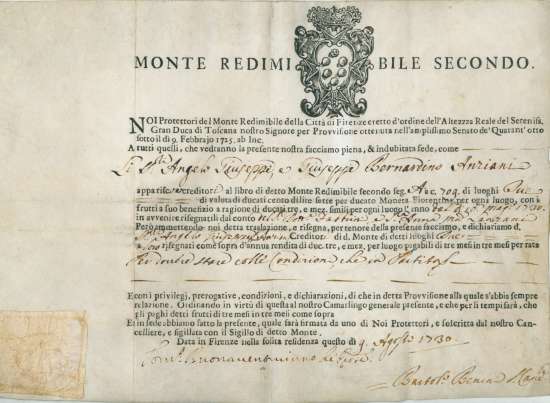 MONTE REDIMIBILE SECONDO.
NOI Protettori del Monte Redimibile della Città di Firenze eretto d'ordine dell'Altezza Reale del Serenifs.
Gran Duca di Toscana nostro Signore per Provvisione ottenuta nell'amplissimo Senato de' Quarant'otto
sotto il dì 9. Febbrajo 1725. ab Inc.
A tutti quelli, che vedranno la presente nostra facciamo piena, & indubitata fede, come
Angelo Giuseppe, e Giuseppe Bernardino Anziani
apparisce creditori al libro di detto Monte Redimibile secondo seg. 709. di luoghi Due
di valuta di ducati cento di lire sette per ducato Moneta Fiorentina per ogni luogo, con i
frutti a suo benefizio a ragione di ducati tre, e mez. simili per ogni luogo l'anno
in avvenire risegnatili dal conto
Però ammettendo noi detta traslazione, e risegna, per tenore della presente facciamo, e dichiariamo d.
Creditori di d. Monte di detti luoghi Due
risegnati come sopra d'annua rendita di duc. tre, e mez. per luogo pagabili di tre mesi in tre mesi per rata
colle Condizioni, che in
E con i privilegj, prerogative, condizioni, e dichiarazioni, di che in detta Provvisione alla quale s'abbia sempre
relazione. Ordinando in virtù di questa al nostro Camarlingo generale presente, e che per il tempi sarà, che
gli paghi detti frutti di tre mesi in tre mesi come sopra
Et in fede abbiamo fatto la presente, quale sarà firmata da uno di Noi Protettori, e soscritta dal nostro Cancelliere, e sigillata con il Sigillo di detto Monte.
Data in Firenze nella solita residenza questo dì 9. Agosto 1730.
Buonaventura
Bartol.